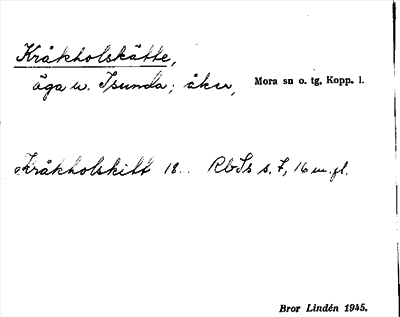 Kråkholskätte,
äga w. Isunda; åker, Mora sn o. tg, Kopp. l.
Kråkholskitt 18.. RbSs s. 7, 16 m. fl.
Bror Lindén 1945.